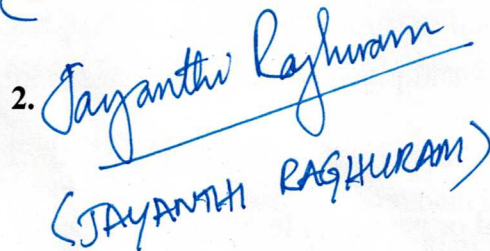 2. Jayanthi Raghuram
(JAYANTHI RAGHURAM)